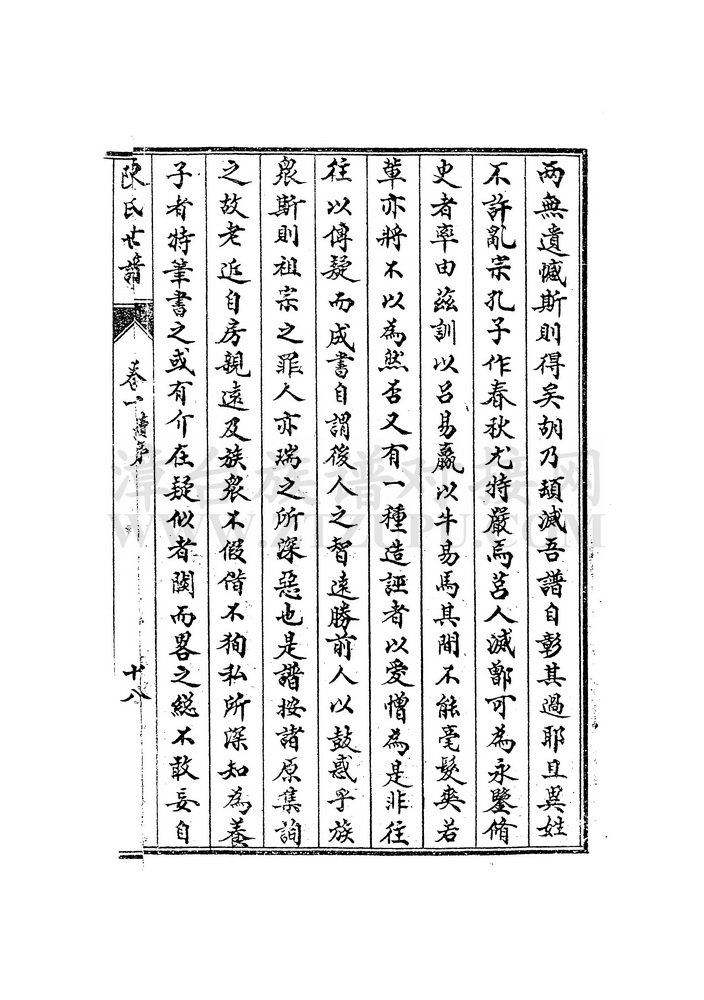 兩無遺憾斯則得矣胡乃頑滅吾譜自彰其過耶且異姓
不許亂宗孔子作春秋尤特嚴焉莒人滅鄫可為永鑒脩
史者率由茲訓以呂易嬴以牛易馬其間不能毫髮爽若
輩亦將不以為然否又有一種造誣者以愛憎為是非往
往以傳疑而成書自謂後人之智遠勝前人以鼓惑乎族
眾斯則祖宗之罪人亦瑞之所深惡也是譜按諸原集詢
之故老近自房親遠及族眾不假借不狥私所深知為養
子者特筆書之或有介在疑似者闕而畧之總不敢妄自
陳氏世譜
卷一 續序
十八
漳台族谱对接网
WWW.ZTZUPU.COM